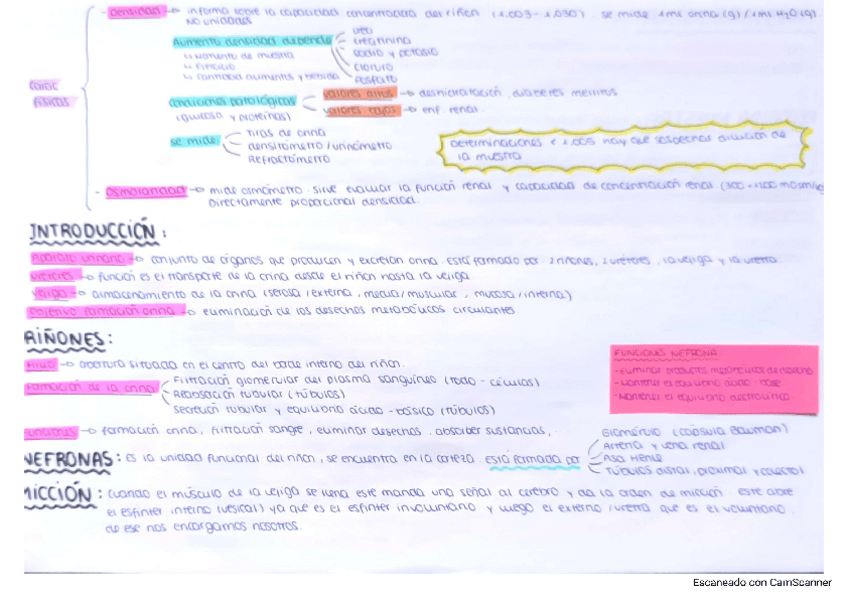 - Densidad → informa sobre la capacidad concentradora del riñón (1.003-1.030). se mide 1ml orina (g) / 1ml H2O (g).
NO unidades
Aumento densidad depende
urea
creatinina
sodio y potasio
cloruro
fosfato
↳ Momento de muestra
↳ Ejercicio
↳ Cantidad alimentos y bebida
Caract
físicas
condiciones patológicas
(glucosa y proteínas)
valores altos → deshidratación, diabetes mellitus
valores bajos → enf. renal.
se mide
Tiras de orina
densitómetro / urinómetro
Refractómetro
Determinaciones < 1.005 hay que sospechar dilución de
la muestra
- Osmolaridad → mide osmómetro. sirve evaluar la función renal y capacidad de concentración renal. (300-1200 mOsm/kg
Directamente proporcional densidad.
INTRODUCCIÓN:
Aparato urinario → conjunto de órganos que producen y excretan orina. está formado por: 2 riñones, 2 uréteres, la vejiga y la uretra.
uréteres → función es el transporte de la orina desde el riñón hasta la vejiga
vejiga → almacenamiento de la orina (serosa/externa, media/muscular, mucosa/interna)
Objetivo formación orina → eliminación de los desechos metabólicos circulantes.
RIÑONES:
Hilio → abertura situada en el centro del borde interno del riñón.
Formación de la orina
Filtración glomerular del plasma sanguíneo (todo - células)
Reabsorción tubular (túbulos)
Secreción tubular y equilibrio ácido-básico (túbulos)
FUNCIONES NEFRONA:
- Eliminar productos metabólicos de desecho
- Mantener el equilibrio ácido base
- Mantener el equilibrio electrolítico
Funciones → formación orina, filtración sangre, eliminar desechos, absorber sustancias,
NEFRONAS: es la unidad funcional del riñón, se encuentra en la corteza. está formada por
Glomérulo (cápsula Bowman)
Arteria y vena renal
Asa Henle
Túbulos distal, proximal y colector
MICCIÓN: cuando el músculo de la vejiga se llena este manda una señal al cerebro y da la orden de micción. este abre
el esfínter interno (vesical) ya que es el esfínter involuntario y luego el externo/uretra que es el voluntario.
de ese nos encargamos nosotros.
Escaneado con CamScanner